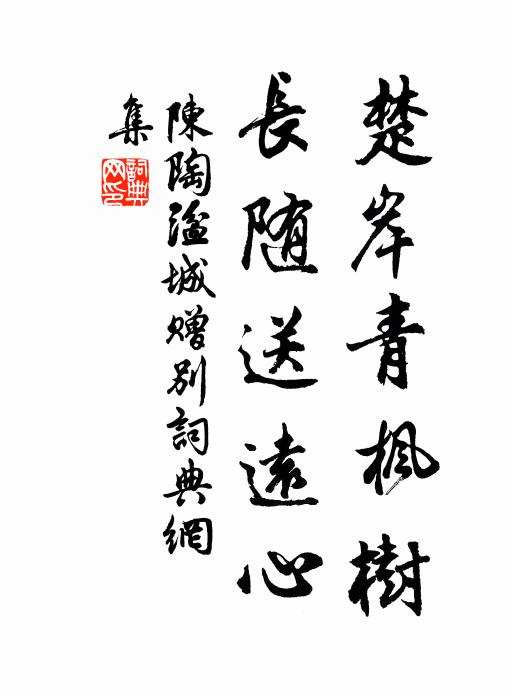 楚岸青楓樹
長随送遠心
陳陶湓城贈别詞典網
集
詞典
网印